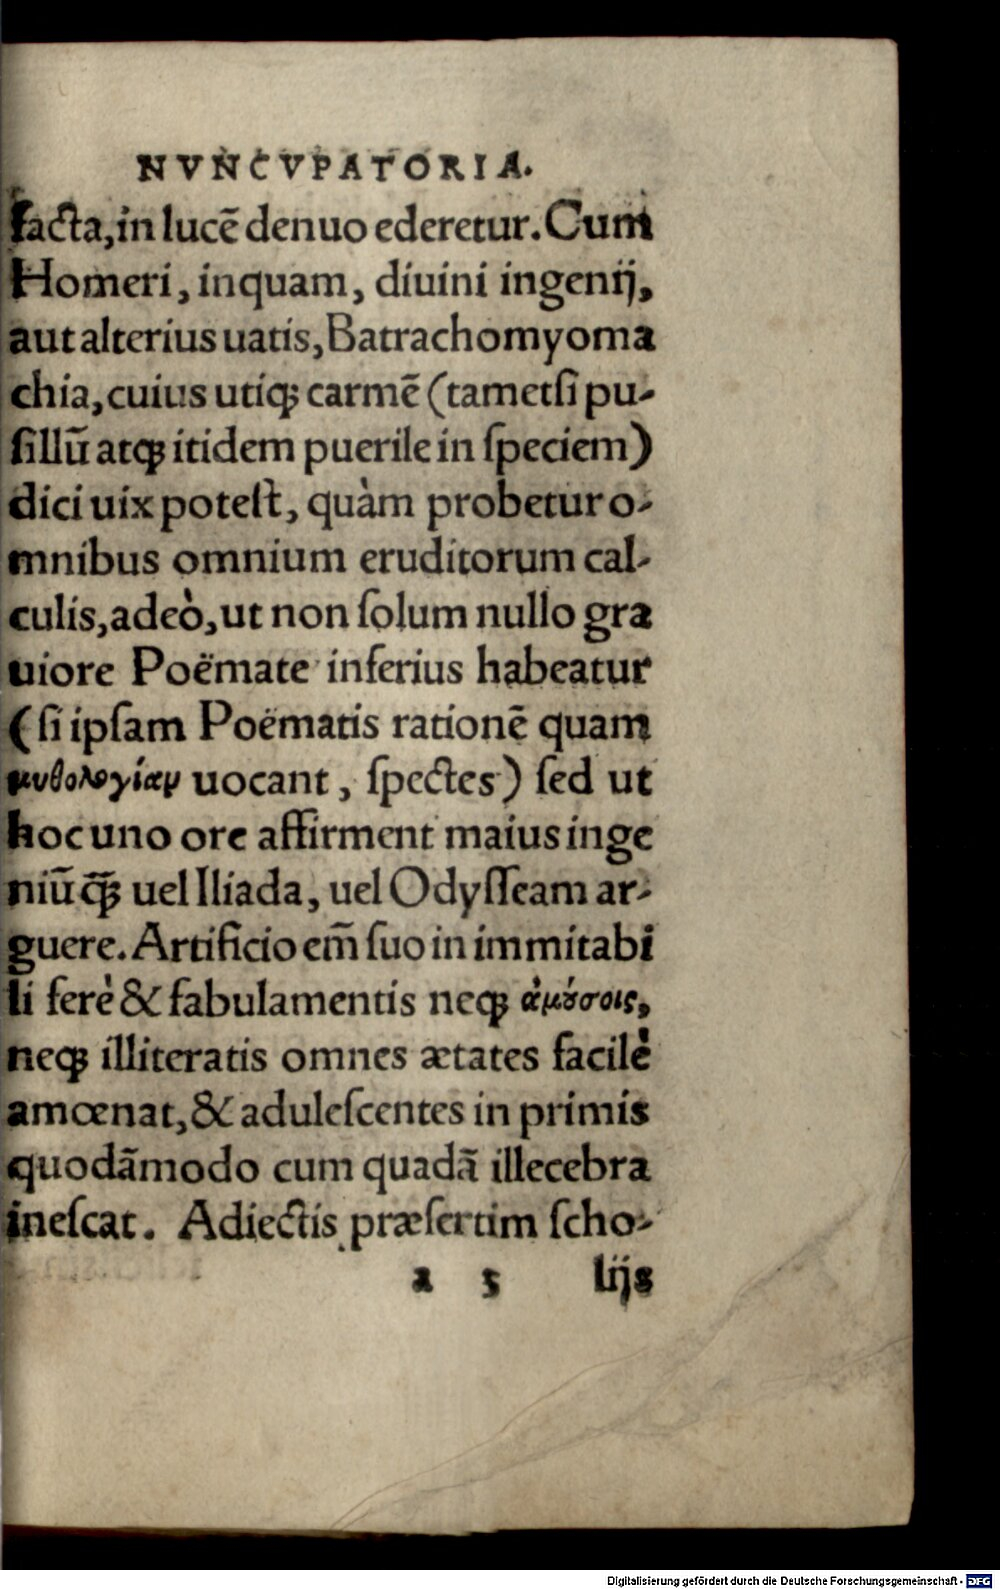 NVNCVPATORIA.
facta, in lucē denuo ederetur. Cum
Homeri, inquam, diuini ingenij,
aut alterius uatis, Batrachomyoma
chia, cuius utiqꝫ carmē (tametſi pu-
ſillū atqꝫ itidem puerile in ſpeciem)
dici uix poteſt, quàm probetur o-
mnibus omnium eruditorum cal-
culis, adeò, ut non ſolum nullo gra
uiore Poëmate inferius habeatur
(ſi ipſam Poëmatis rationē quam
μυθολογίαν uocant, ſpectes) ſed ut
hoc uno ore affirment maius inge
niū q̄ꝫ uel Iliada, uel Odyſſeam ar-
guere. Artificio em̄ ſuo in immitabi
li ferè & fabulamentis neqꝫ ἀμȣ́σοις,
neqꝫ illiteratis omnes ætates facilè
amœnat, & aduleſcentes in primis
quodāmodo cum quadā illecebra
ineſcat. Adiectis præſertim ſcho-
a 5 lijs
Digitalisierung gefördert durch die Deutsche Forschungsgemeinschaft - DFG